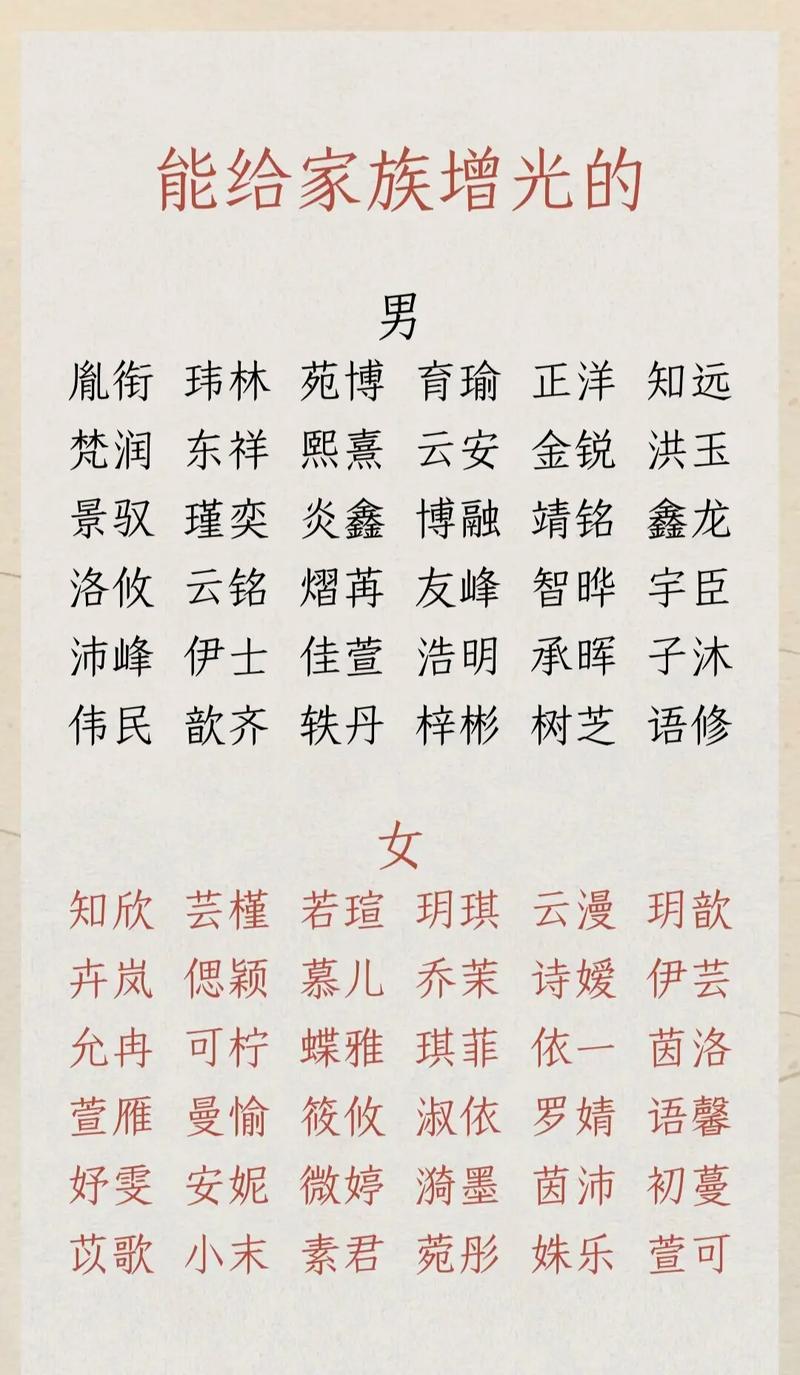 能给家族增光的
男
胤衔 玮林 苑博 育瑜 正洋 知远
梵润 东祥 熙熹 云安 金锐 洪玉
景驭 瑾奕 炎鑫 博融 靖铭 鑫龙
洛攸 云铭 熠苒 友峰 智晔 宇臣
沛峰 伊士 佳萱 浩明 承晖 子沐
伟民 歆齐 轶丹 梓彬 树芝 语修
女
知欣 芸槿 若瑄 玥琪 云漫 玥歆
卉岚 偲颖 慕儿 乔茉 诗嫒 伊芸
允冉 可柠 蝶雅 琪菲 依一 茵洛
萱雁 曼愉 筱攸 淑依 罗婧 语馨
妤雯 安妮 微婷 漪墨 茵沛 初蔓
苡歌 小末 素君 菀彤 姝乐 萱可